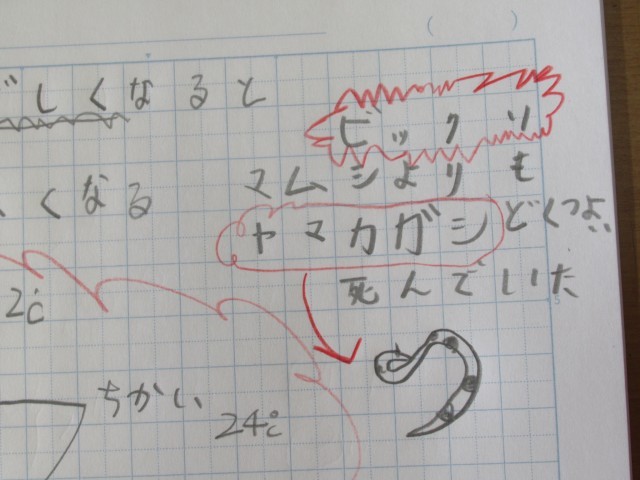 しくなると
ビックリ
くなる
マムシよりも
ヤマカガシ どくつよい
死んでいた
ちかい
24℃